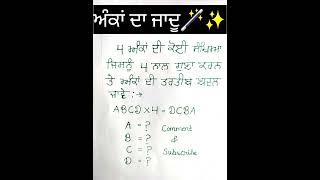 ਅੰਕਾਂ ਦਾ ਜਾਦੂ🪄✨
4 ਅੰਕਾਂ ਦੀ ਕੋਈ ਸੰਖਿਆ
ਜਿਸਨੂੰ 4 ਨਾਲ ਗੁਣਾ ਕਰਨ
ਤੇ ਅੰਕਾਂ ਦੀ ਤਰਤੀਬ ਬਦਲ
ਜਾਵੇ :→
ABCD × 4 = DCBA
A = ?
B = ? Comment
C = ? &
D = ? Subscribe